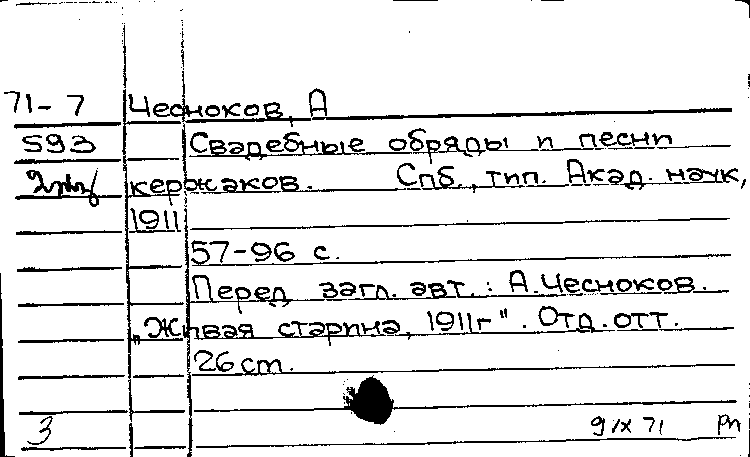 71-7 Чесноков, А
593 Свадебные обряды и песни
кержаков. Спб., тип. Акад. наук,
1911
57-96 с.
Перед загл. авт.: А.Чесноков.
„Живая старина, 1911г". Отд.отт.
26 cm.
3 9 IX 71